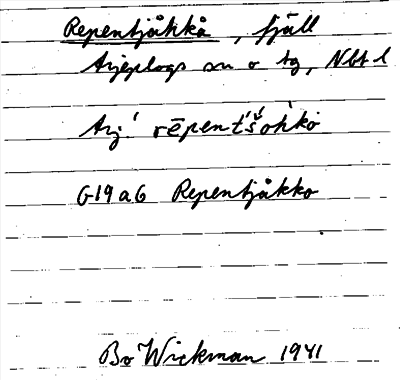 Repentjåkkå, fjäll
Arjeplogs sn o tg, Nbt l
Arj. rēpent́š́ohkò
G19a6 Repentjåkko
Bo Wickman 1941